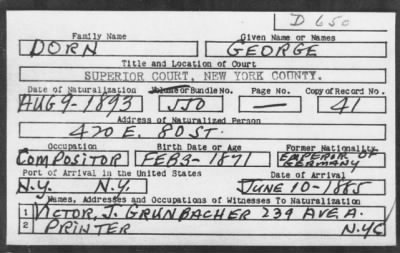 D 650
Family Name Given Name or Names
DORN GEORGE
Title and Location of Court
SUPERIOR COURT, NEW YORK COUNTY.
Date of Naturalization Volume or Bundle No. Page No. Copy of Record No.
AUG 9-1893 550 — 41
Address of Naturalized Person
420 E. 80 ST.
Occupation Birth Date or Age Former Nationality
COMPOSITOR FEB 3-1871 EMPEROR OF GERMANY
Port of Arrival in the United States Date of Arrival
N.Y. N.Y. JUNE 10-1885
Names, Addresses and Occupations of Witnesses To Naturalization
1 VICTOR, J. GRUNBACHER 239 AVE. A.
2 PRINTER N.Y.C